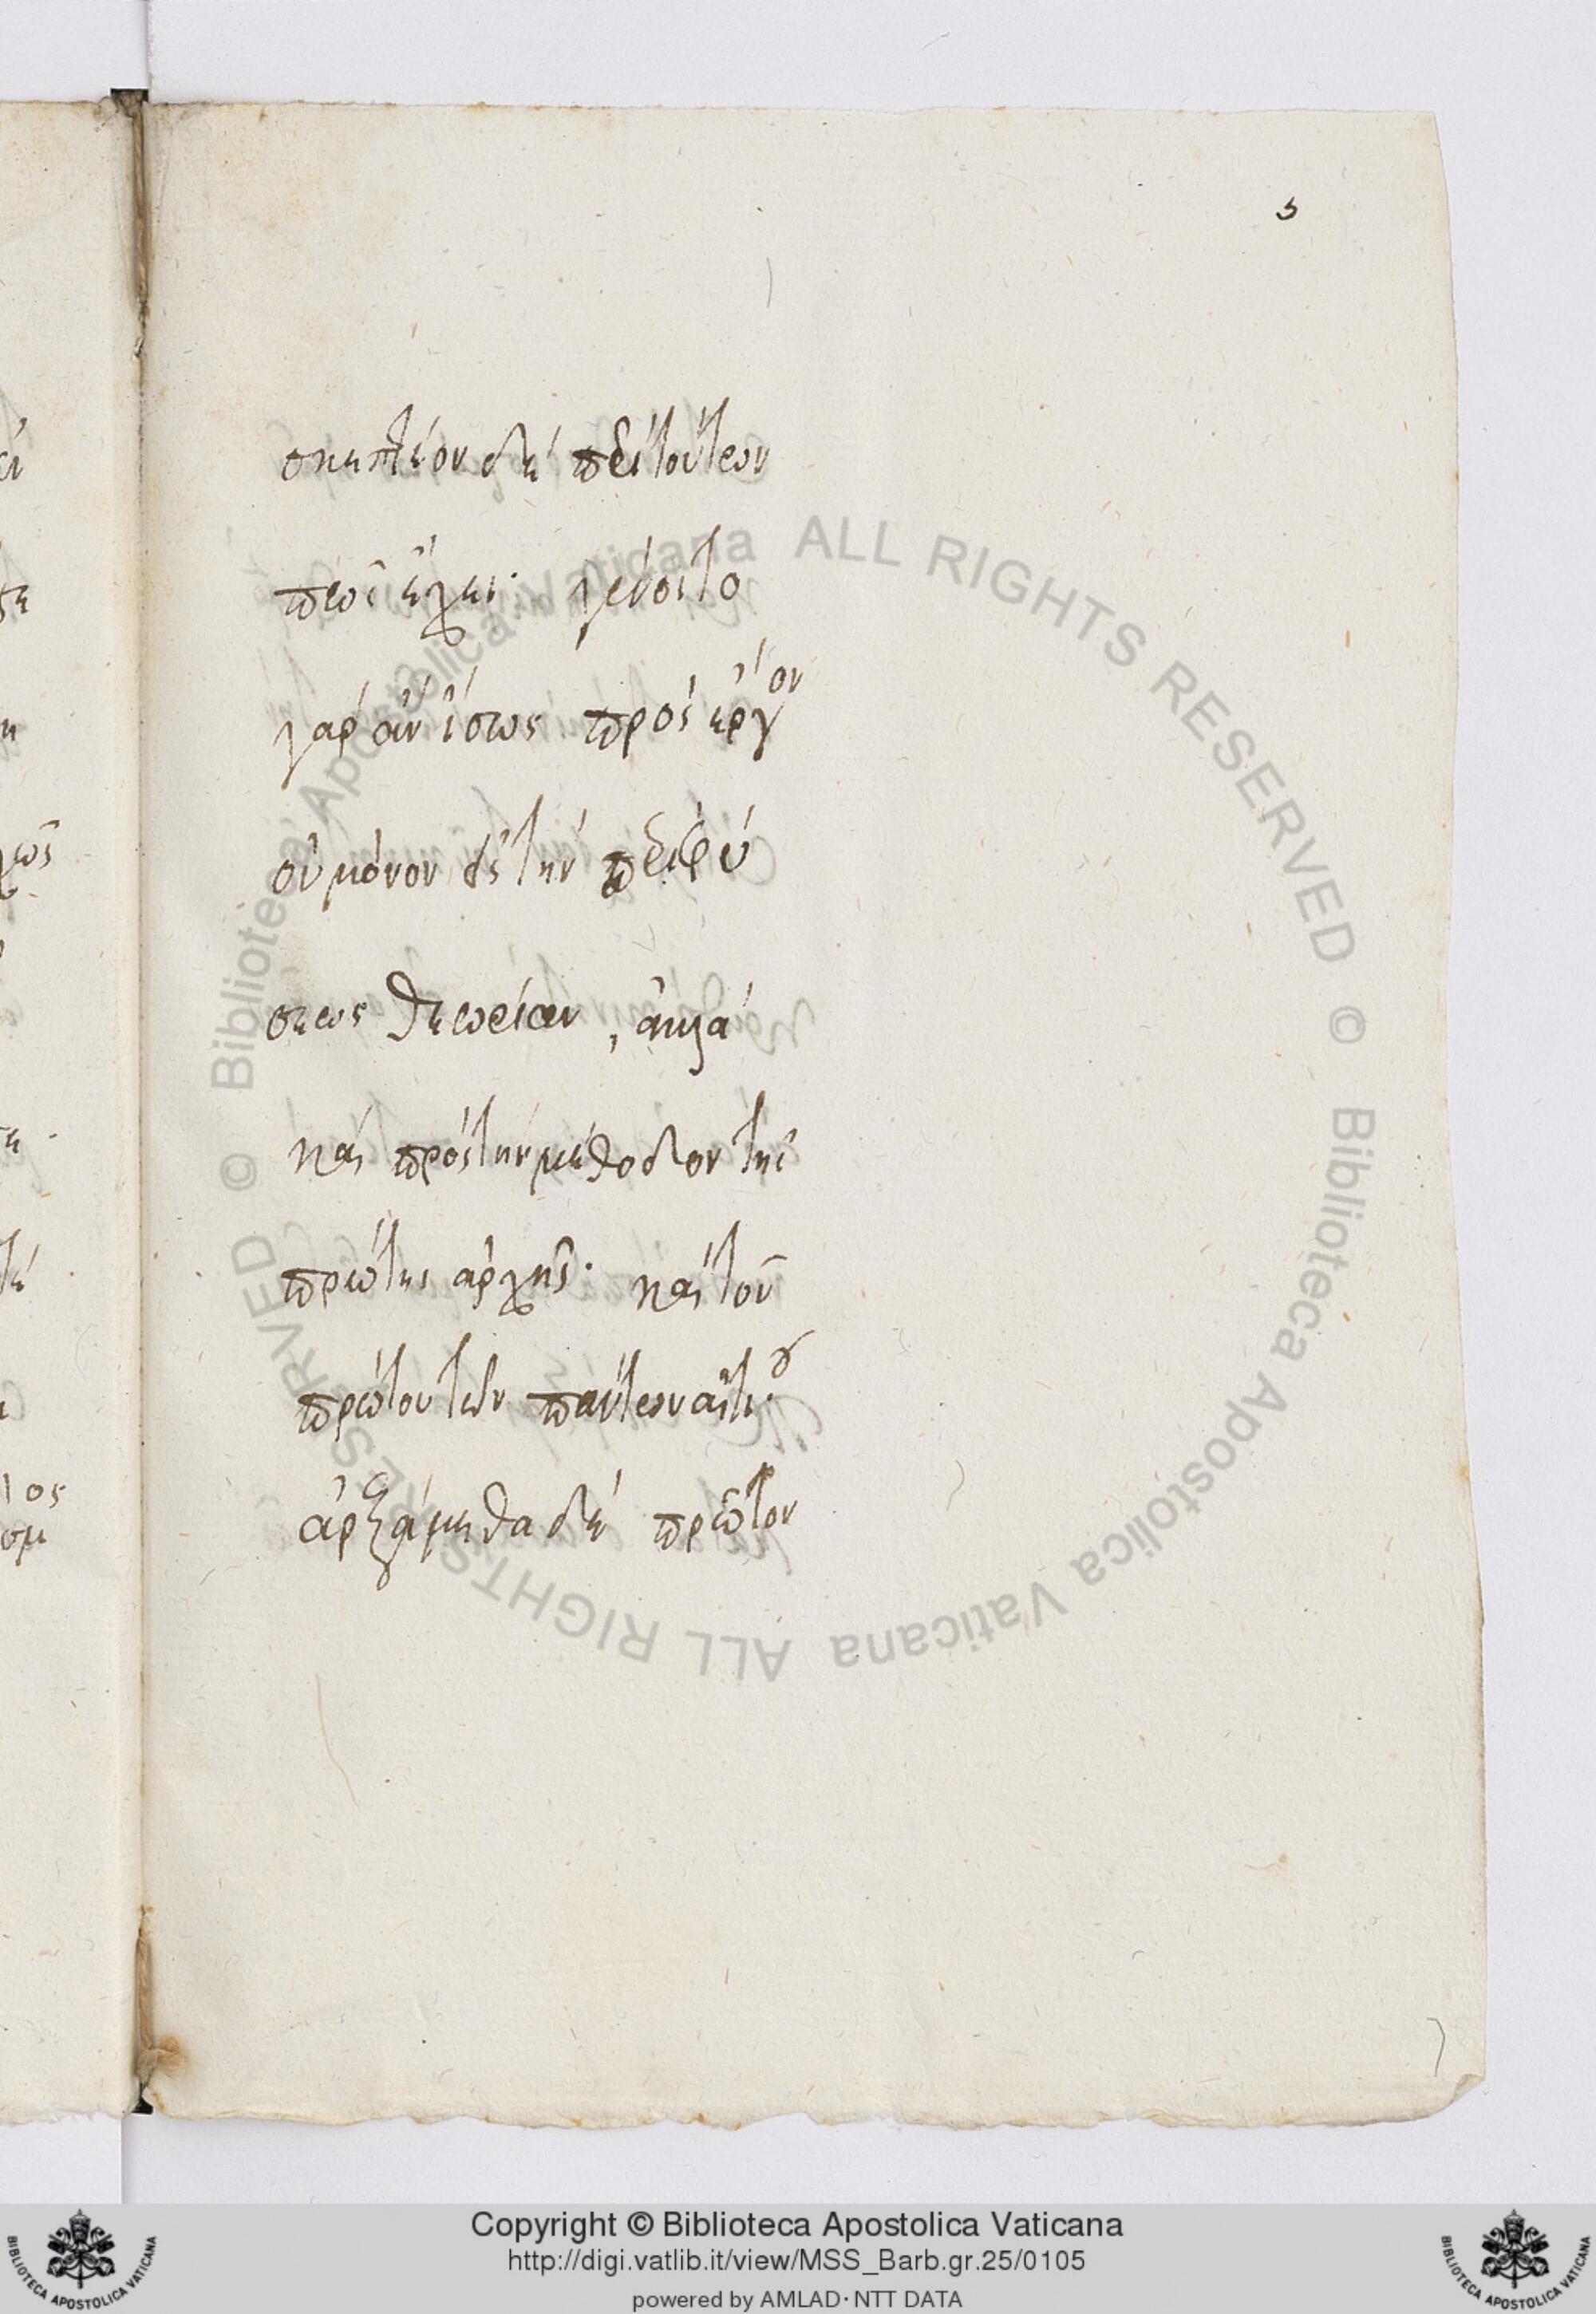 5
σκεπτέον δὲ περὶ τούτων
πῶς ἔχει· γένοιτο
γὰρ ἂν ἴσως πρὸς ἔργον
οὐ μόνον εἰς τὴν περὶ φύ
σεως θεωρίαν, ἀλλὰ
καὶ πρὸς τὴν μέθοδον τῆς
πρώτης ἀρχῆς· καὶ τοῦ
πρώτου τῶν πάντων αἰτίου·
ἀρξάμεθα δὲ πρῶτον
© Biblioteca Apostolica Vaticana ALL RIGHTS RESERVED © Biblioteca Apostolica Vaticana ALL RIGHTS RESERVED
Copyright © Biblioteca Apostolica Vaticana
http://digi.vatlib.it/view/MSS_Barb.gr.25/0105
powered by AMLAD·NTT DATA
BIBLIOTECA APOSTOLICA VATICANA
BIBLIOTECA APOSTOLICA VATICANA